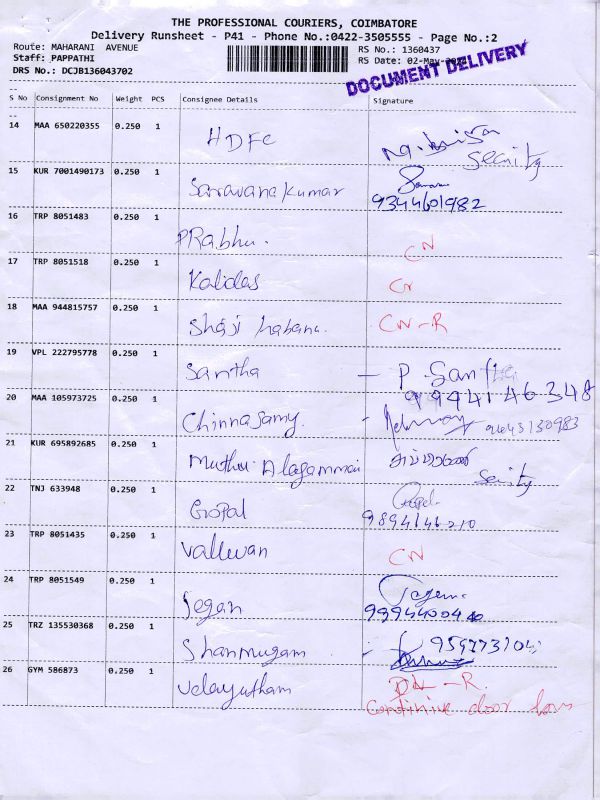 THE PROFESSIONAL COURIERS, COIMBATORE
Delivery Runsheet - P41 - Phone No.:0422-3505555 - Page No.:2
Route: MAHARANI AVENUE RS No.: 1360437
Staff: PAPPATHI RS Date: 02-May-
DRS No.: DCJB136043702
DOCUMENT DELIVERY
S No Consignment No Weight PCS Consignee Details Signature
14 MAA 650220355 0.250 1 HDFC
Security
15 KUR 7001490173 0.250 1 Saravanakumar
9344601982
16 TRP 8051483 0.250 1 PRabhu. CN
17 TRP 8051518 0.250 1 Kalidas CN
18 MAA 944815757 0.250 1 Shaji CN-R
19 VPL 222795778 0.250 1 Santha - P. Santha
9994146348
20 MAA 105973725 0.250 1 Chinnasamy. 9645130983
21 KUR 695892685 0.250 1 Muthu Alagammai
22 TNJ 633948 0.250 1 Gopal Gopal
9894146210
23 TRP 8051435 0.250 1 Valluvan CN
24 TRP 8051549 0.250 1 Jegan
25 TRZ 135530368 0.250 1 Shanmugam
26 GYM 586873 0.250 1 Velayutham DL-R.
door